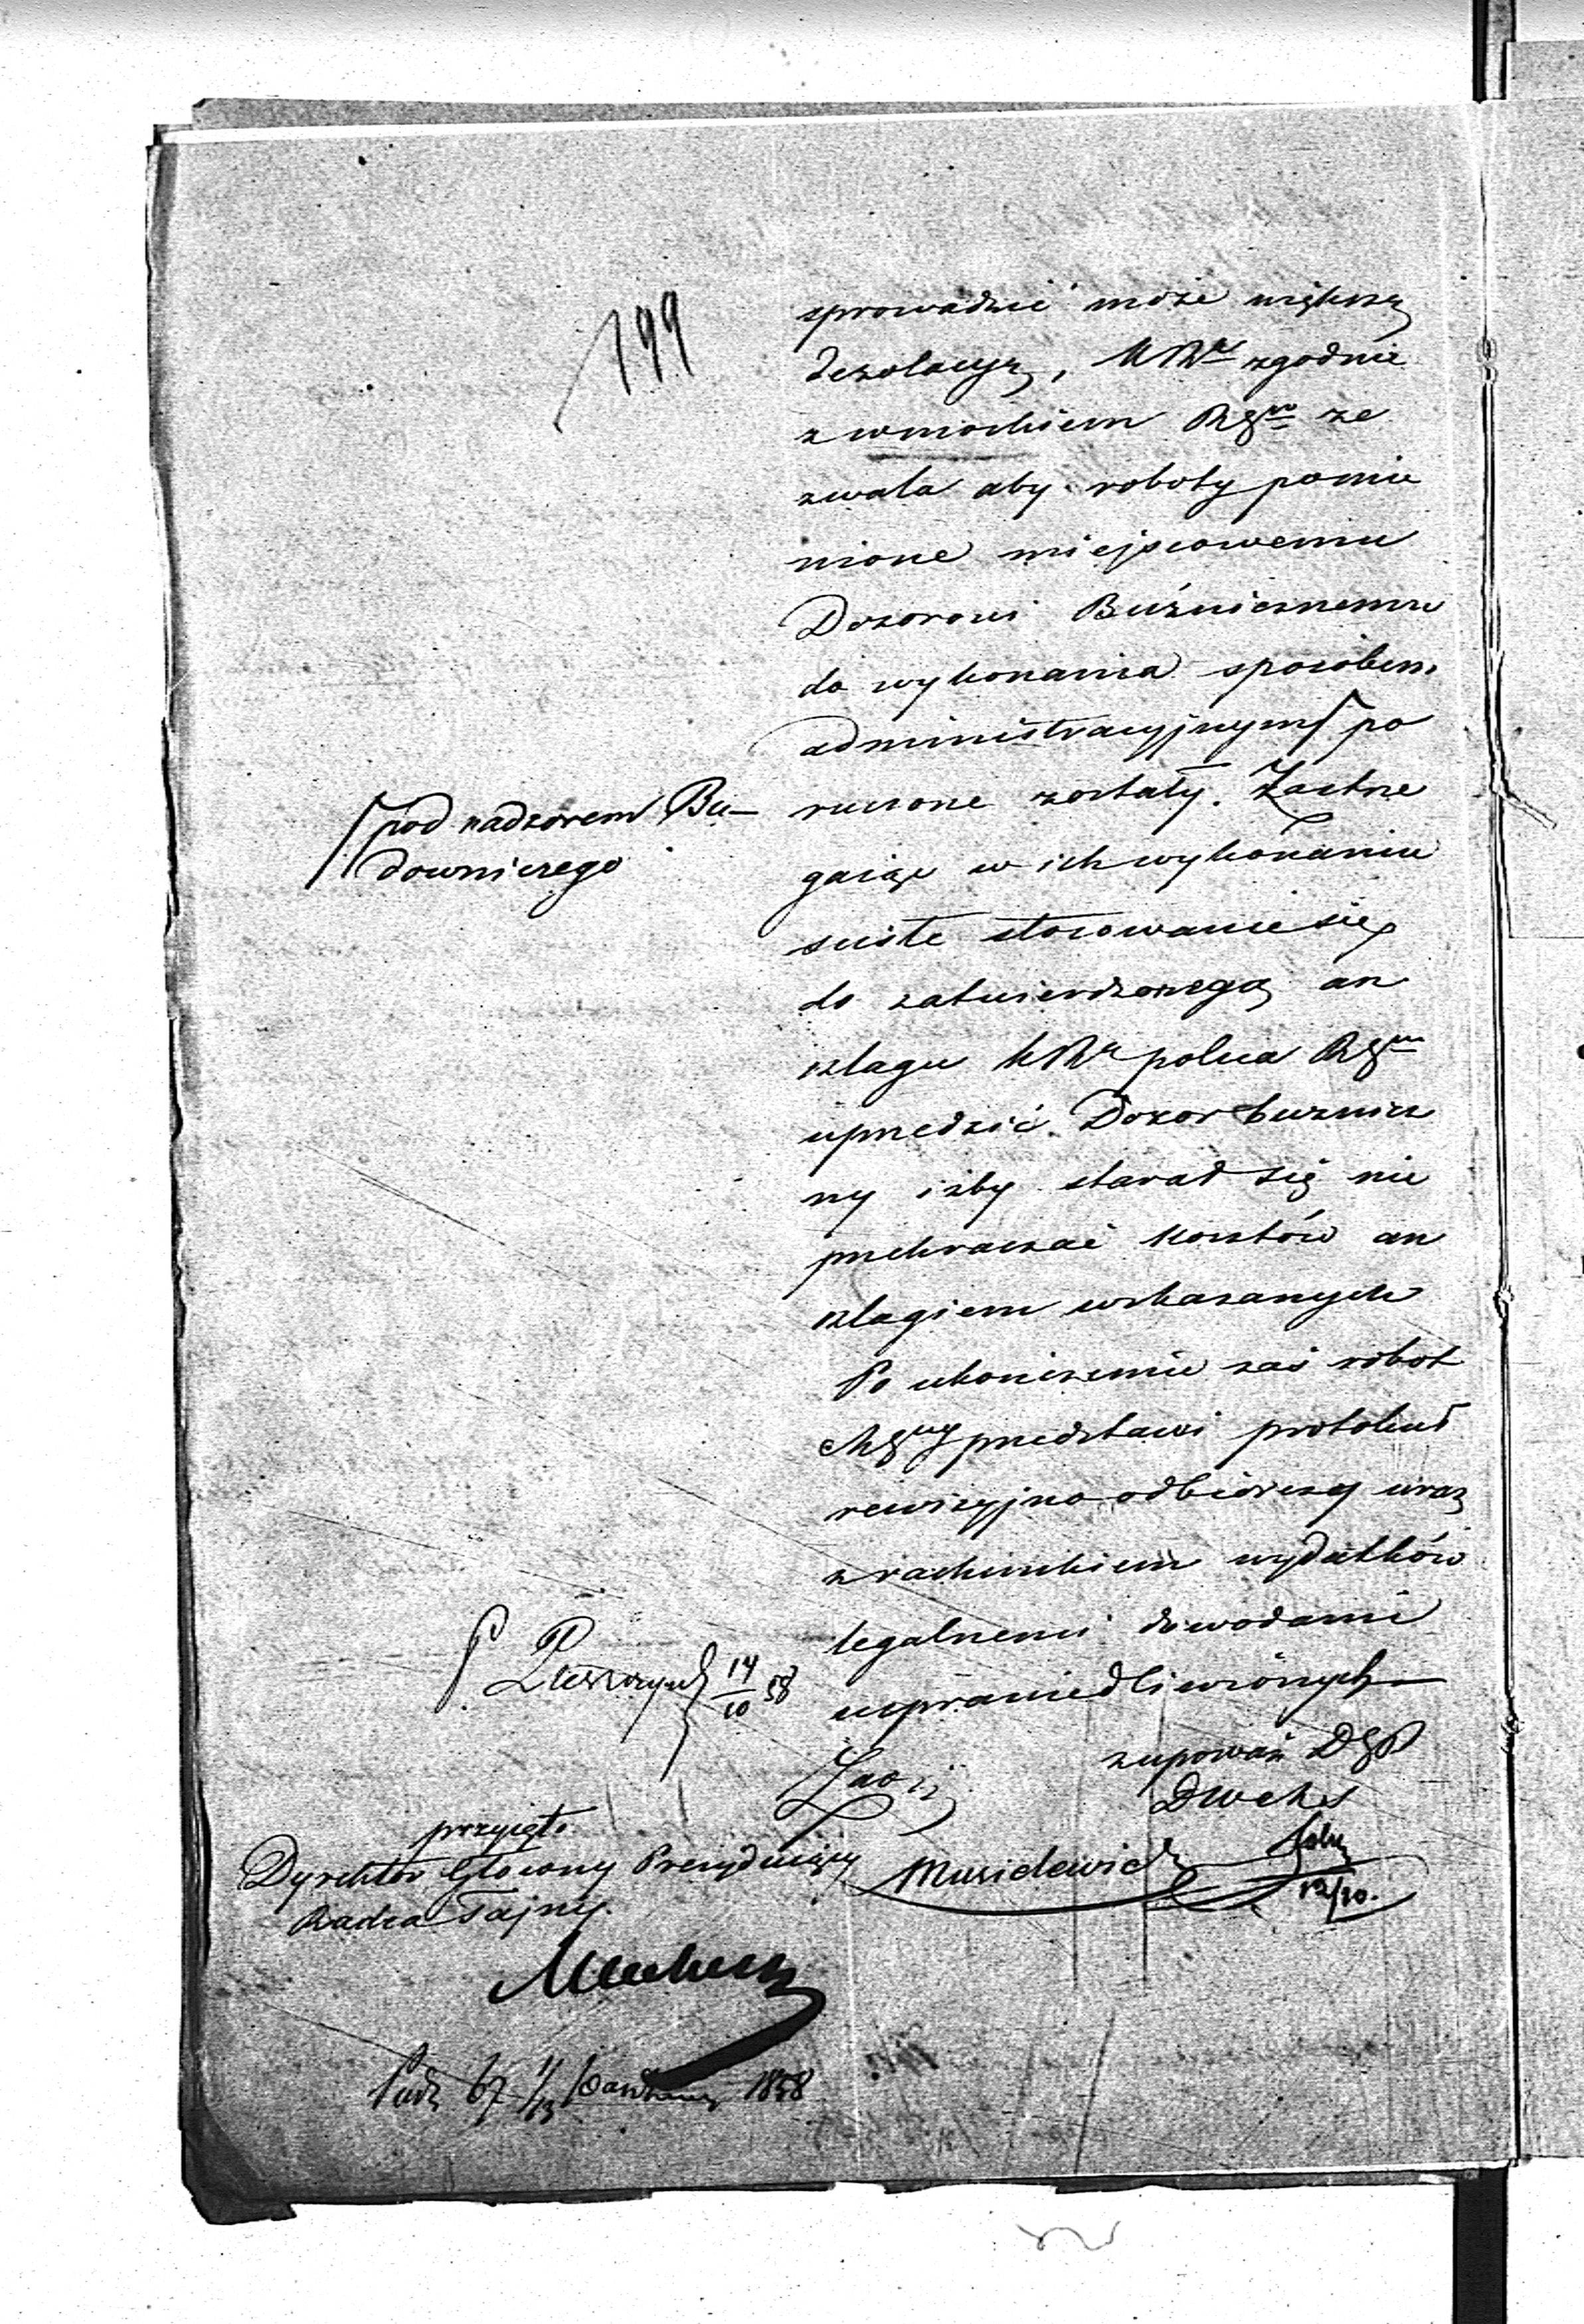 199
sprowadzić może większą
dezolacyą, KRz zgodnie
z wnioskiem RGu ze
zwala aby roboty pomie
nione miejscowemu
Dozorowi Bużnicznemu
do wykonania sposobem
administracyjnym po
ruczone zostały. Zastrze
gając w ich wykonaniu
ścisłe stosowanie się
do zatwierdzonego an
szlagu KRz poleca RGu
uprzedzić Dozor bużnicz
ny iżby starał się nie
przekraczać kosztów an
szlagiem wskazanych
Po ukończeniu zaś robot
RGny przedstawi protokuł
rewizyjno odbiorczy wraz
z rachunkiem wydatków
legalnemi dowodami
usprawiedliwionych
pod nadzorem Bu-
downiczego
14/10 58
z upoważ DGP
przyjęto
Dyrektor Głowny Prezydujący
Radca Tajny.
Musielewicz
12/10.
1858